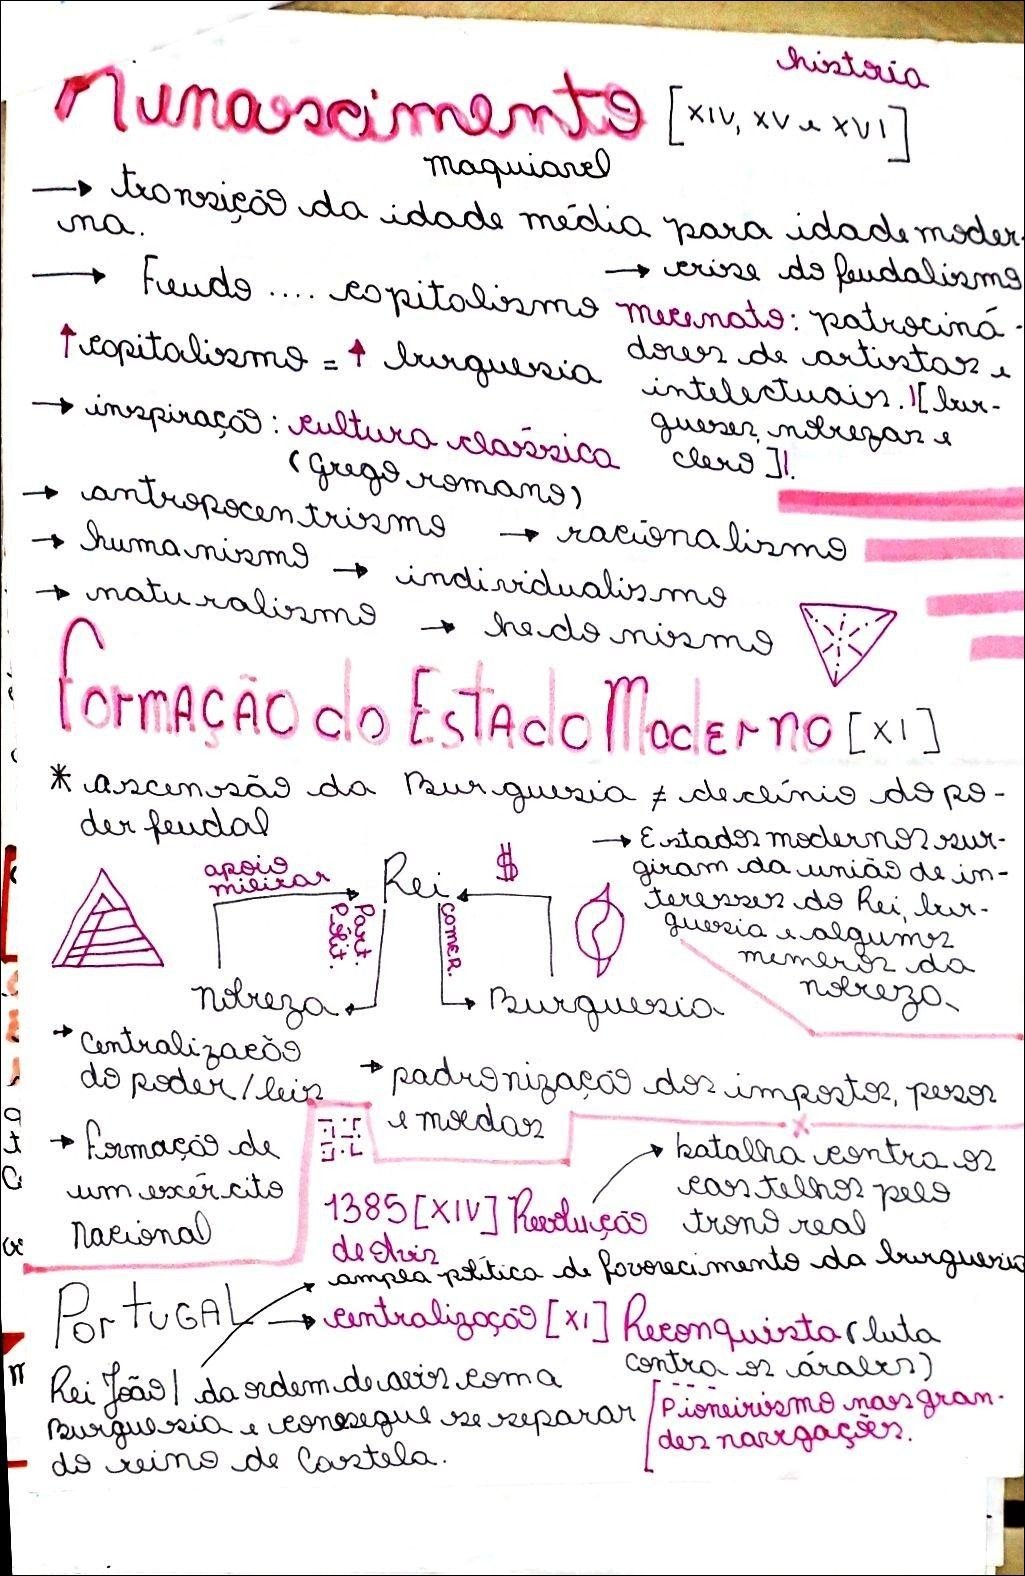 história
Renascimento [XIV, XV e XVI]
maquiavel
→ transição da idade média para idade moder-
na.
→ Feudo .... capitalismo
→ crise do feudalismo
↑ capitalismo = ↑ burguesia
mecenato: patrociná-
dores de artistas e
intelectuais. ![bur-
gueses, nobrezas e
clero]!.
→ inspiração: cultura clássica
(Grego romano)
→ antropocentrismo → racionalismo
→ humanismo → individualismo
→ naturalismo → hedonismo
Formação do Estado Moderno [XI]
* ascensão da Burguesia ≠ declínio do po-
der feudal
→ Estados modernos sur-
giram da união de in-
teresses do Rei, bur-
guesia e algumos
memeros da
nobreza.
apoio
milirar
Rei
$
Part.
Polit.
COMER.
Nobreza
Burguesia
→ Centralização
do poder / leis
→ padronização dos impostos, pesos
e moedas
→ Formação de
um exército
Nacional
1385 [XIV] Revolução
de Avis
→ batalha contra os
castelhos pelo
trono real
→ ampla política de favorecimento da burguesia
Portugal → centralização [XI] Reconquista (luta
contra os árabes)
Rei João I da ordem de avis com a
Burguesia e conesegue se separar
do reino de Castela.
[Pioneirismo nas gran-
des navegações.